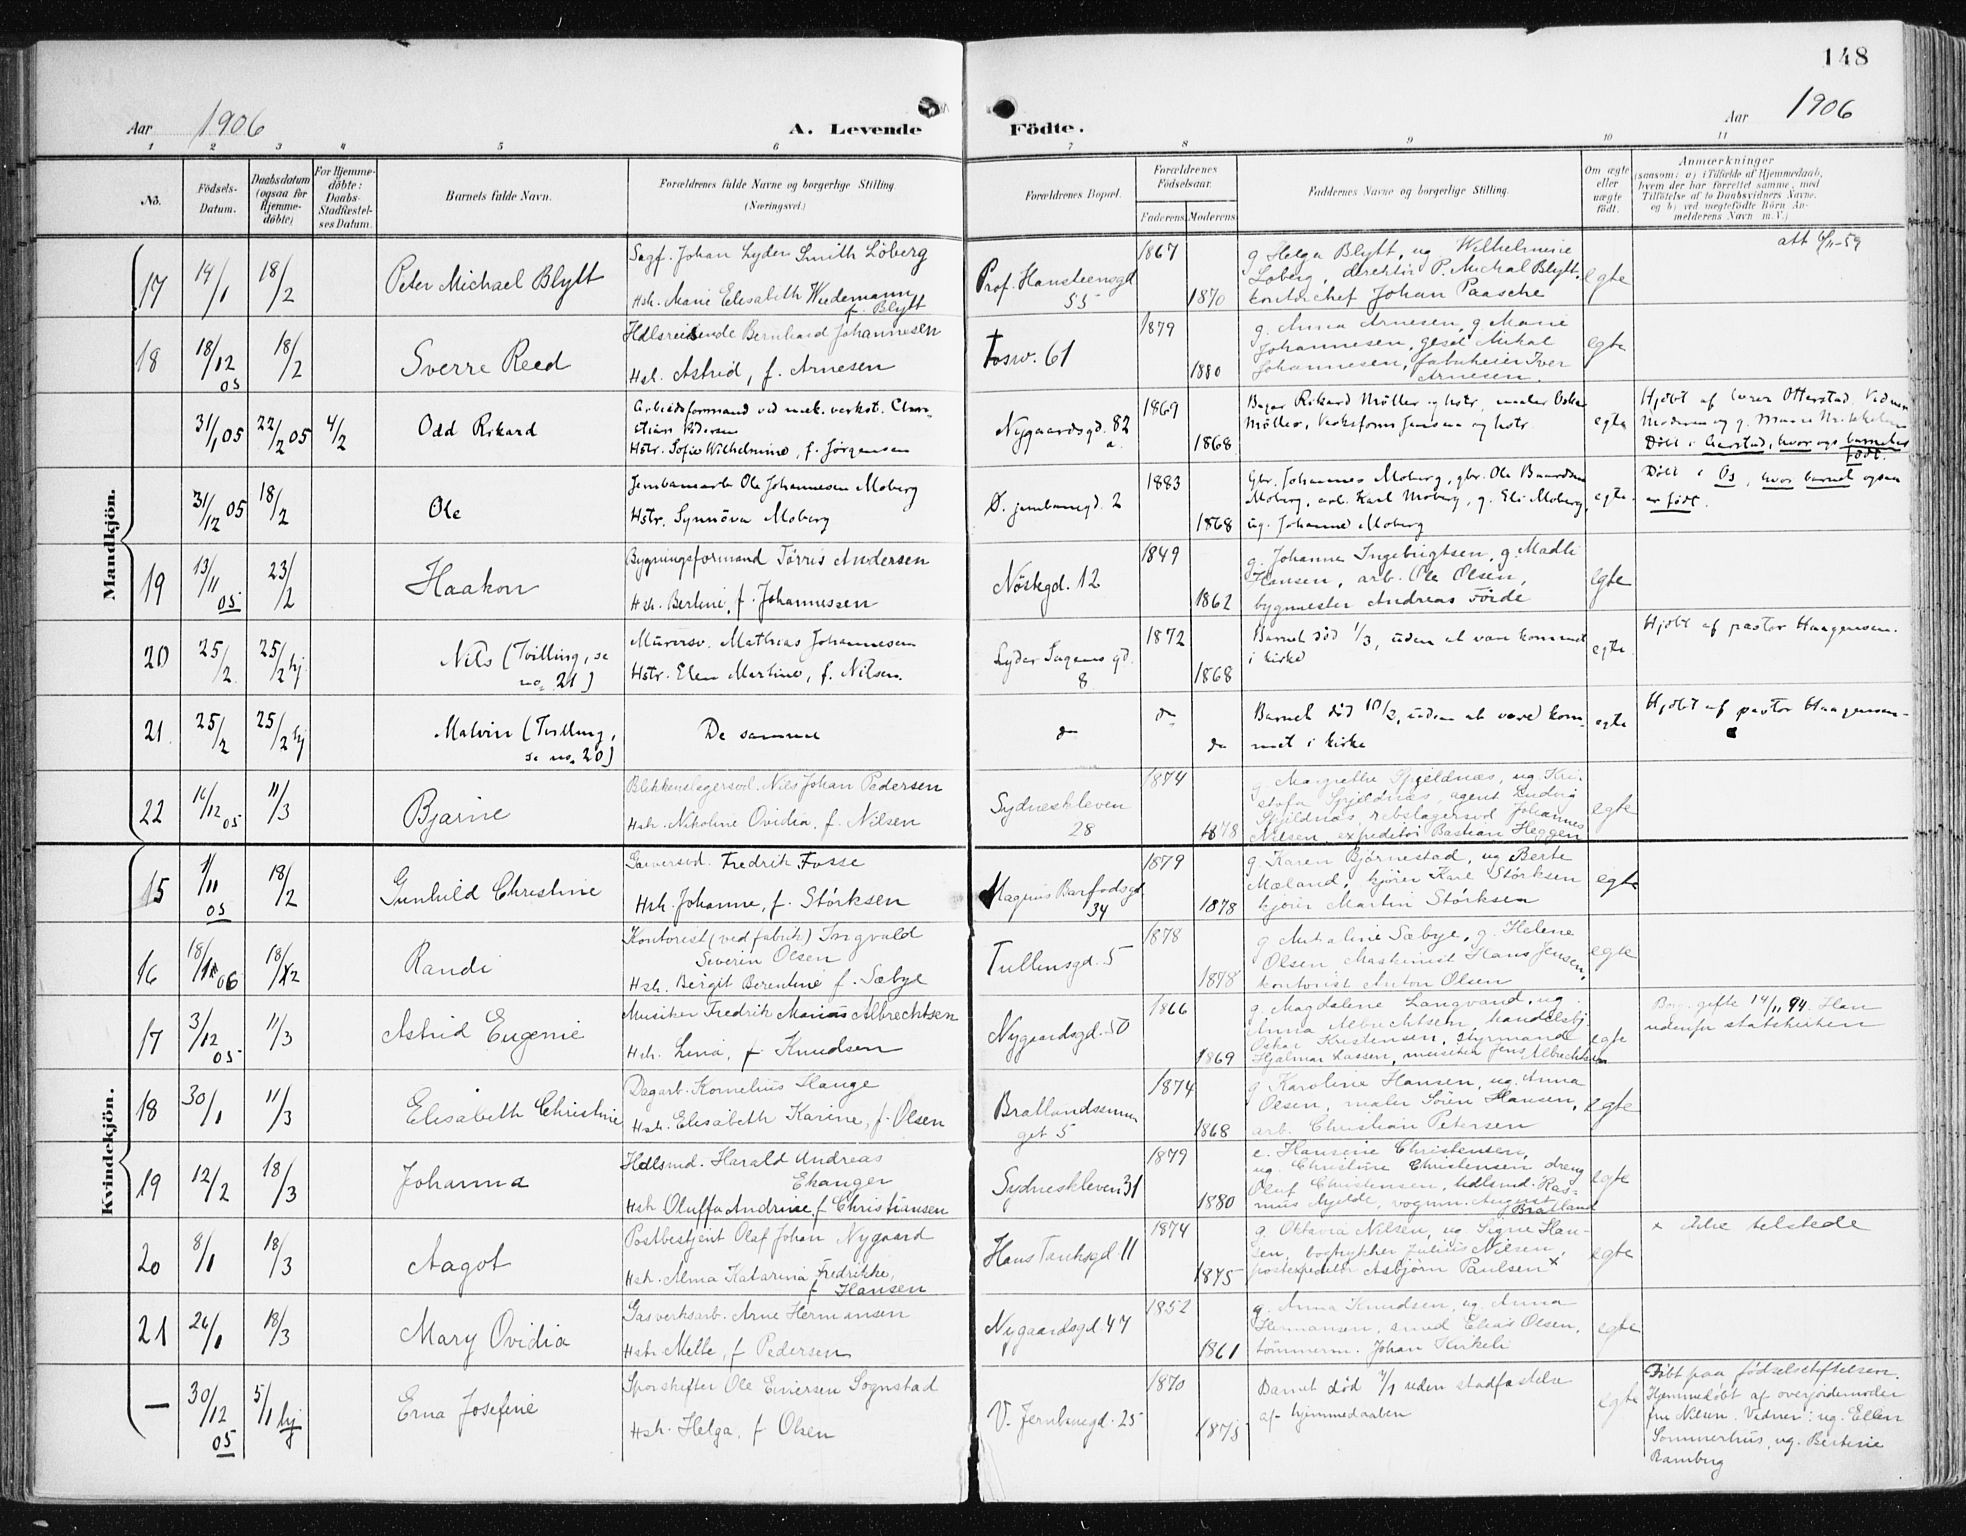 148
Aar 1906
A. Levende Födte.
Aar 1906
1 2 3 4 5 6 7 8 9 10 11
No.
Födsels-Datum.
Daabsdatum (ogsaa för Hjemme-döbte)
For Hjemme-döbte: Daabs-Stadfæstel-ses Datum.
Barnets fulde Navn.
Forældrenes fulde Navne og borgerlige Stilling. (Næringsvei.)
Forældrenes Bopæl.
Forældrenes Födselsaar.
Faderens Moderens
Faddernes Navne og borgerlige Stilling.
Om ægte eller uægte födt.
Anmærkninger
(saasom: a) i Tilfælde af Hjemmedaab,
hvem der har forrettet samme, med
Tilföielse af to Daabsvidners Navne.
og b) ved uægtefödte Börn An-
melderens Navn m. V.)
Mandkjön.
17 14/1 18/2 Peter Michael Blytt
Sagf. Johan Lyder Smith Løberg
Hstr. Marie Elisabeth Wiedemann f. Blytt
Prof. Hansteensgd 55
1867 1870
g. Helga Blytt, ug. Wilhelmine
Løberg, direktør P. Michal Blytt,
kontorchef Johan Paasche
egte
att 6/11-59
18 18/12 05 18/2 Sverre Reed
Hdlsreisende Bernhard Johannesen
Hsh. Astrid, f. Arnesen
Fosw. 61
1879 1880
g. Anna Arnesen, g. Marie
Johannesen, gesel Mikal
Johannesen, fabrikeier Iver
Arnesen.
egte
31/1 05 22/2 05 4/2 Odd Rikard
Arbeidsformand ved mek. verkst. Chris-
tian Pedersen
Hstr. Sofie Wilhelmine, f. Jørgensen
Nygaardsgd. 82 a.
1869 1868
Bager Rikard Møller og hstr, maler Oskar
Møller, Verksform Jensen og hstr.
egte
Hjdbt af lærer Otterstad. Vidner
Moderen og g. Marie Mikkelsen
Døbt i Gjerstad, hvor ogs barnet er
født.
31/12 05 18/2 Ole
Jernbanearb Ole Johannesen Moberg
Hstr. Synnöva Moberg
D. jernbanegd. 2
1883 1868
Gbr. Johannes Moberg, gbr. Ole Baardsen
Moberg, arb. Karl Moberg, g. Eli Moberg,
ug. Johanne Moberg
egte
Døbt i Os, hvor barnet ogsaa
er født.
19 13/11 05 23/2 Haakon
Bygningsformand Tørris Andersen
Hsh. Berline, f. Johannessen
Nöstegd. 12
1849 1862
g. Johanne Ingebrigtsen, g. Madli
Hansen, arb. Ole Olsen,
bygmester Andreas Förde
egte
20 25/2 25/2 hj. Nils (Tvilling, se
no. 21)
Murersv. Mathias Johannesen
Hstr. Elen Martine, f. Nilsen.
Lyder Sagens gd. 8
1872 1868
Barnet død 1/3, uden at være kommet
i kirke
egte
Hjdbt af pastor Haagensen.
21. 25/2 25/2 hj Malvin (Tvilling,
se no. 20)
De samme
do
do do
Barnet død 10/3, uden at være kom-
met i kirke
egte
Hjdbt af pastor Haagensen.
22 16/12 05 11/3 Bjarne
Blikkenslagersvd. Nils Johan Pedersen
Hsh. Nikoline Ovidia, f. Nilsen
Sydneskleven 28
1874 1878
g. Margrethe Spjeldnæs, ug. Kri-
stofa Spjeldnæs, agent Ludvig
Spjeldnæs, rebslagersvd Johannes
Nilsen, expeditör Bastian Heggen
egte
Kvindekjön.
15 1/11 05 18/2 Gunhild Christine
Garversvd. Fredrik Fosse
Hsh. Johanne, f. Störksen
Magnus Barfodsgd 34
1879 1878
g. Karen Bjørnestad, ug Berte
Mæland, kjører Karl Störksen
kjører Martin Störksen
egte
16 18/1 06 18/2 Randi
Kontorist (ved fabrik) Ingvald
Severin Olsen
Hsh. Birgit Berentine f. Sæbye
Tullinsgd. 5
1878 1878
g. Antaline Sæbye, g. Helene
Olsen Maskinist Hans Jensen,
kontorist Anton Olsen
egte
17 3/12 05 11/3 Astrid Eugenie
Musiker Fredrik Marius Albrechtsen
Hsh. Lina, f. Knudsen
Nygaardsgd. 50
1866 1869
g. Magdalene Langvand, ug.
Anna Albrechtsen, handelsbj.
Oskar Kristensen, styrmand
Hjalmar Lassen, musiker Jens Albrechtsen
egte
Borg. gifte 14/11 94. Han
udenfor statskirken
18 30/1 11/3 Elisabeth Christine
Dagarb. Kornelius Hauge
Hsh. Elisabeth Karine, f. Olsen
Bratlandssmuget 5
1874 1868
g Karoline Hansen, ug. Anna
Olsen, maler Sören Hansen,
arb. Christian Petersen
egte
19 12/2 18/3 Johanna
Hdlsmd. Harald Andreas
Ekanger
Hsh Oluffa Andrine f Christiansen
Sydneskleven 31
1879 1880
e. Hansine Christensen,
ug. Christine Christensen dreng
Oluf Christensen, hdlsmd. Ras-
mus Kjelde, vognm. August
Bratland
egte
20 8/1 18/3 Aagot
Postbestjent Olaf Johan Nygaard
Hsh. Alma Katarina Fredrikke,
f Hansen
Hans Tanksgd. 11
1874 1875
g. Oktavia Nilsen, ug Signe Han-
sen, bogtrykker Julius Nilsen,
postexpeditör Asbjørn Paulsen x
egte
x ikke tilstede
21 26/1 18/3 Mary Ovidia
Gasverksarb. Arne Hermansen
Hsh Mette, f Pedersen
Nygaardsgd. 47
1852 1861
g. Anna Knudsen, ug. Anna
Hermansen, smed Elias Olsen,
tømmerm. Johan Kirkeli
egte
— 30/12 05 5/1 hj Erna Josefine
Sporskifter Ole Einersen Sognstad
Hsh. Helga, f Olsen
V. Jernbanegd. 25
1870 1875
Barnet død 7/1 uden stadfæstelse
af hjemmedaaben
egte
Født paa fødselsstiftelsen.
Hjemmedöbt af overjordemoder
fru Nilsen. Vidner: ug. Ellen
Sommerhus, ug. Bertine
Ramberg